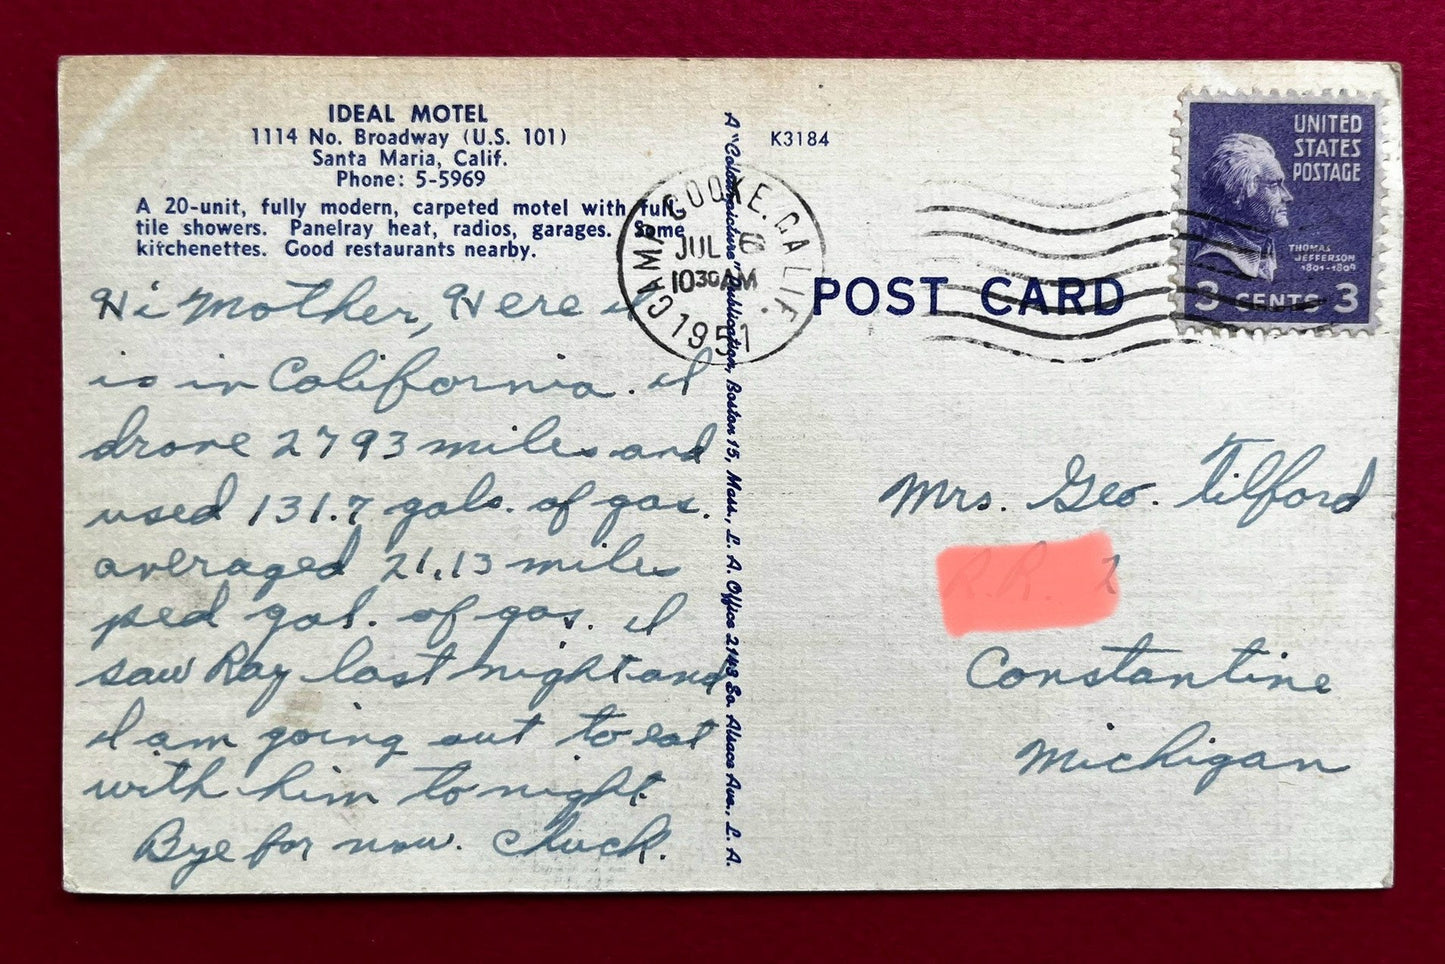 IDEAL MOTEL
1114 No. Broadway (U.S. 101)
Santa Maria, Calif.
Phone: 5-5969
A 20-unit, fully modern, carpeted motel with full
tile showers. Panelray heat, radios, garages. Some
kitchenettes. Good restaurants nearby.
Hi Mother, Here I
is in California. I
drove 2793 miles and
used 131.7 gals. of gas.
averaged 21.13 miles
ped gal. of gas. I
saw Ray last night and
I am going out to eat
with him tonight.
Bye for now. Chuck.
A "Colourpicture" Publication, Boston 15, Mass., L. A. Office 2143 So. Alsace Ave., L. A.
K3184
CAMP COOKE, CALIF.
JUL 6
10 30 AM
1951
POST CARD
UNITED
STATES
POSTAGE
THOMAS
JEFFERSON
1801-1809
3 CENTS 3
Mrs. Geo. Tilford
R.R. 2
Constantine
Michigan